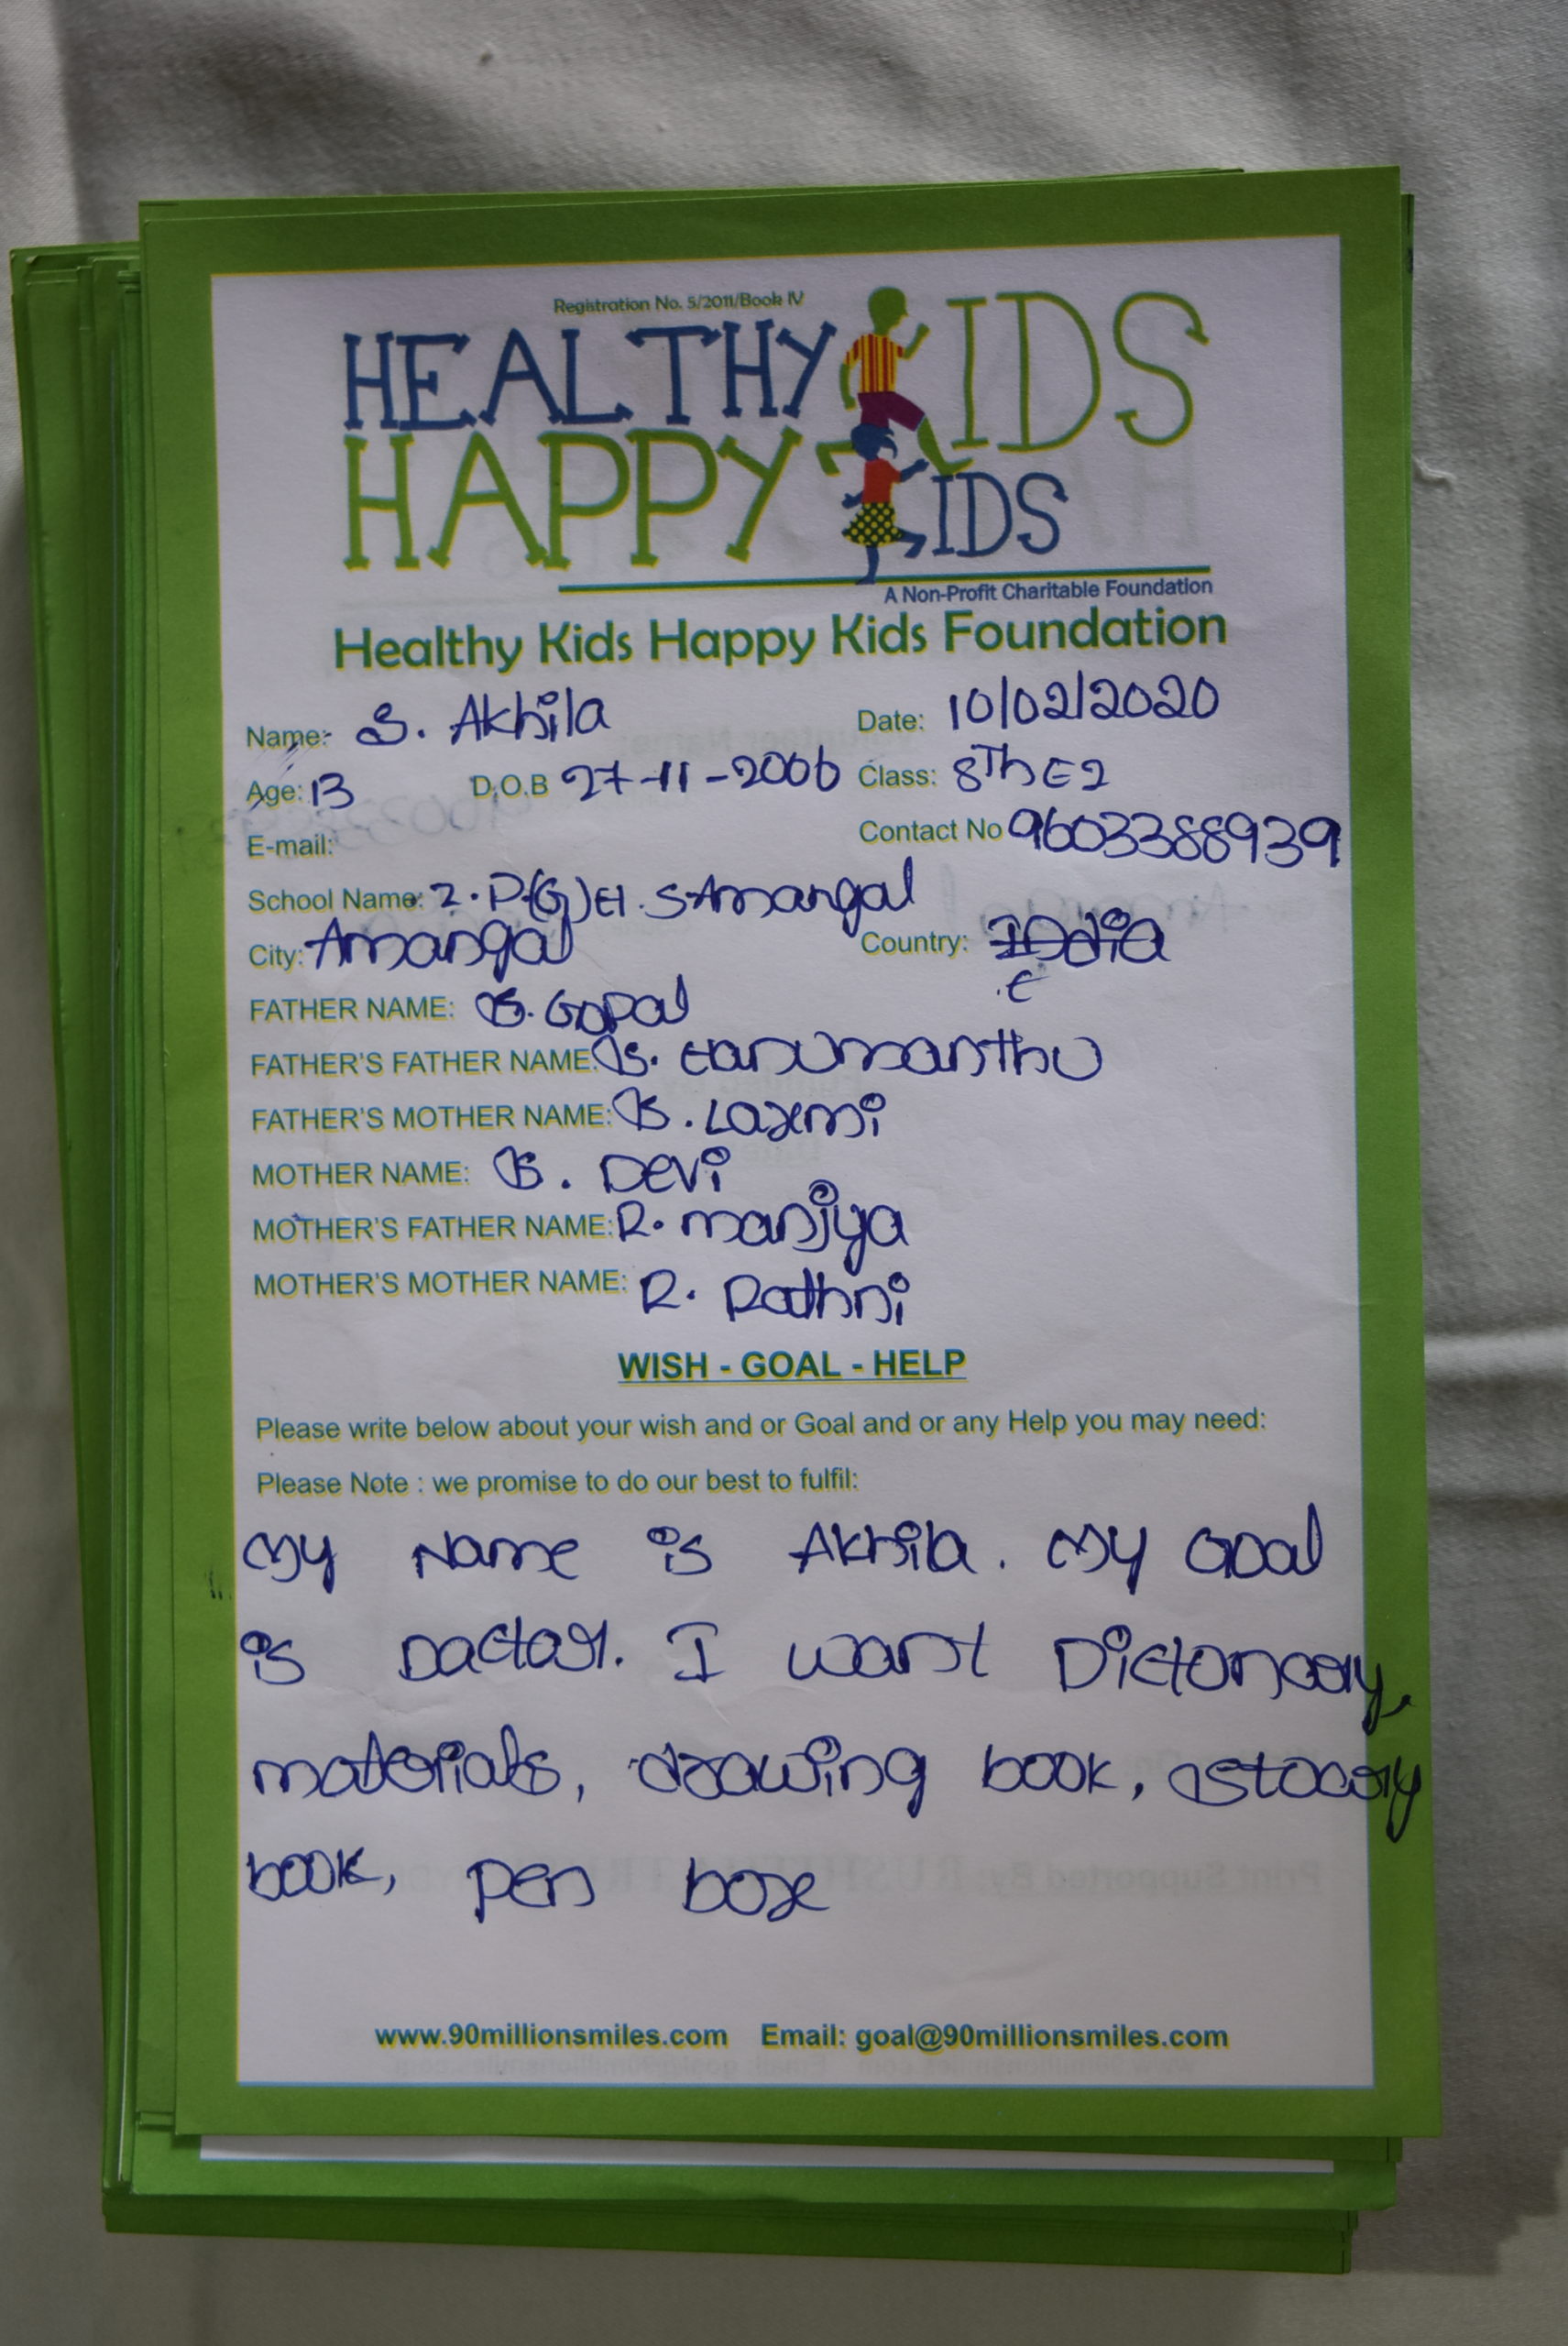 Registration No. 5/2011/Book IV
HEALTHY KIDS
HAPPY KIDS
A Non-Profit Charitable Foundation
Healthy Kids Happy Kids Foundation
Name: S. Akhila Date: 10/02/2020
Age: 13 D.O.B 27-11-2006 Class: 8Th E2
E-mail: Contact No 9603388939
School Name: Z.P(G)H.S Amangal
City: Amangal Country: India
FATHER NAME: S. Gopal
FATHER'S FATHER NAME: S. Hanumanthu
FATHER'S MOTHER NAME: S. Laxmi
MOTHER NAME: S. Devi
MOTHER'S FATHER NAME: R. manjya
MOTHER'S MOTHER NAME: R. Rathni
WISH - GOAL - HELP
Please write below about your wish and or Goal and or any Help you may need:
Please Note : we promise to do our best to fulfil:
My Name is Akhila. My Goal
is Dactor. I want Dictonary,
materials, drawing book, stoary
book, pen box
www.90millionsmiles.com Email: goal@90millionsmiles.com